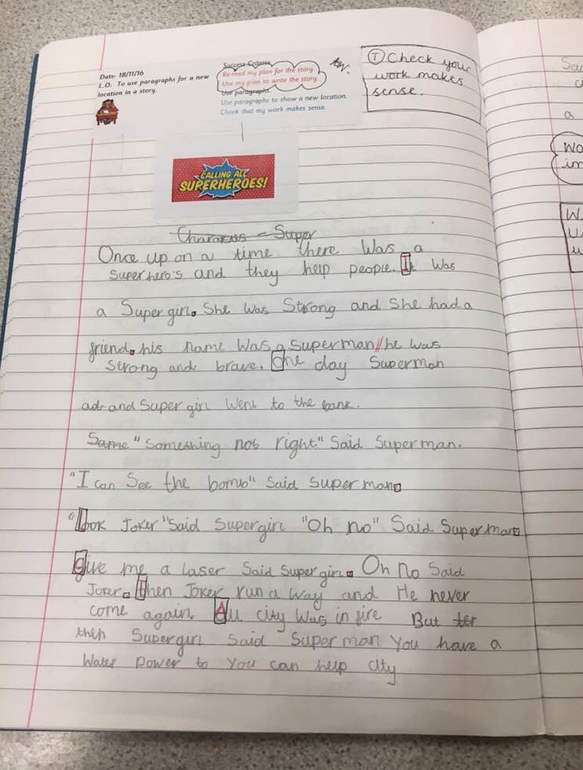 Date: 18/11/16
L.O. To use paragraphs for a new
location in a story.
Success Criteria
Re-read my plan for the story.
Use my plan to write the story.
Use paragraphs.
Use paragraphs to show a new location.
Check that my work makes sense.
T Check your
work makes
sense.
CALLING ALL
SUPERHEROES!
Super
Once up on a time there was a
Superhero's and they help people. It was
a Supergirl. She was Strong and She had a
friend. his name was a superman // he was
strong and brave. One day Superman
and Supergirl went to the bank.
Same "Something not right" Said Superman.
"I can See the bomb" said superman
"Look Joker" said Supergirl "Oh no" Said Superman
Give me a laser said Supergirl. Oh No Said
Joker. then Joker run a way and He never
come again. All city was in fire But
then Supergirl said Superman You have a
Water Power to You can help city